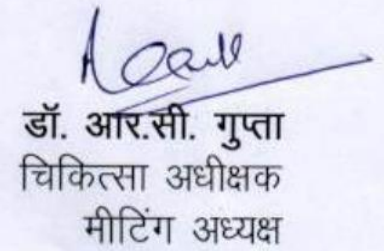 डॉ. आर.सी. गुप्ता
चिकित्सा अधीक्षक
मीटिंग अध्यक्ष